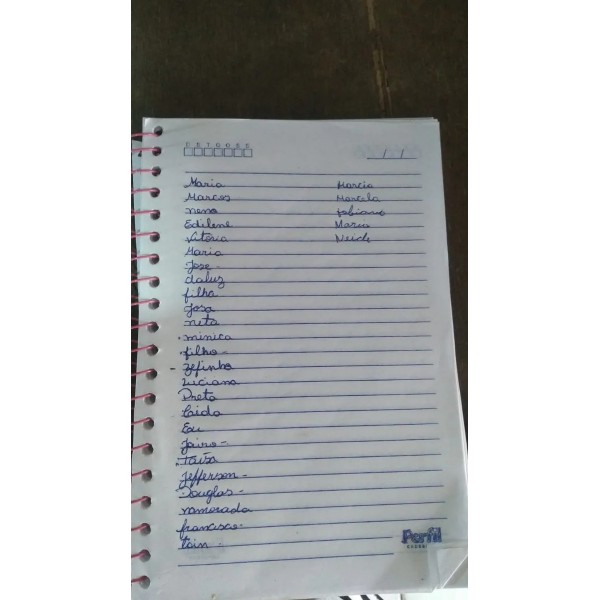 D S T Q Q S S
/ /
Maria Marcia
Marcos Marcela
nena Fabiano
Edilene Maria
Vitória Neide
Maria
Jose -
daluz
filha
Josa
neta
minica
filho -
Zefinha
Luciana
Preta
Cida
Eu
Jairo -
Taisa
Jefferson -
Douglas -
namorada
francisco -
Perfil